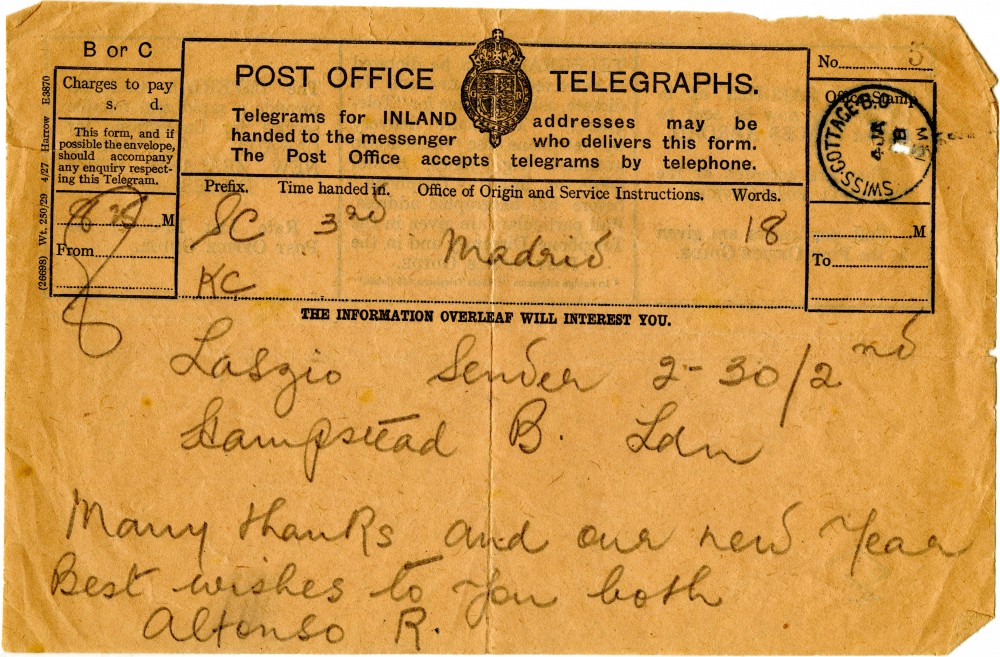 B or C
Charges to pay
s. d.
This form, and if
possible the envelope,
should accompany
any enquiry respect-
ing this Telegram.
8 25 M
From
(26698) Wt. 250/29 4/27 Harrow E3870
POST OFFICE TELEGRAPHS.
G R
Telegrams for INLAND addresses may be
handed to the messenger who delivers this form.
The Post Office accepts telegrams by telephone.
No. 5
Office Stamp
SWISS-COTTAGE-B.O
4 JA
28
M
To
Prefix. Time handed in. Office of Origin and Service Instructions. Words.
SC 3rd Madrid 18
KC
THE INFORMATION OVERLEAF WILL INTEREST YOU.
Laszio Sender 2-30/2nd
Hampstead B. Ldn
Many thanks and our new Year
Best wishes to you both
Alfonso R.